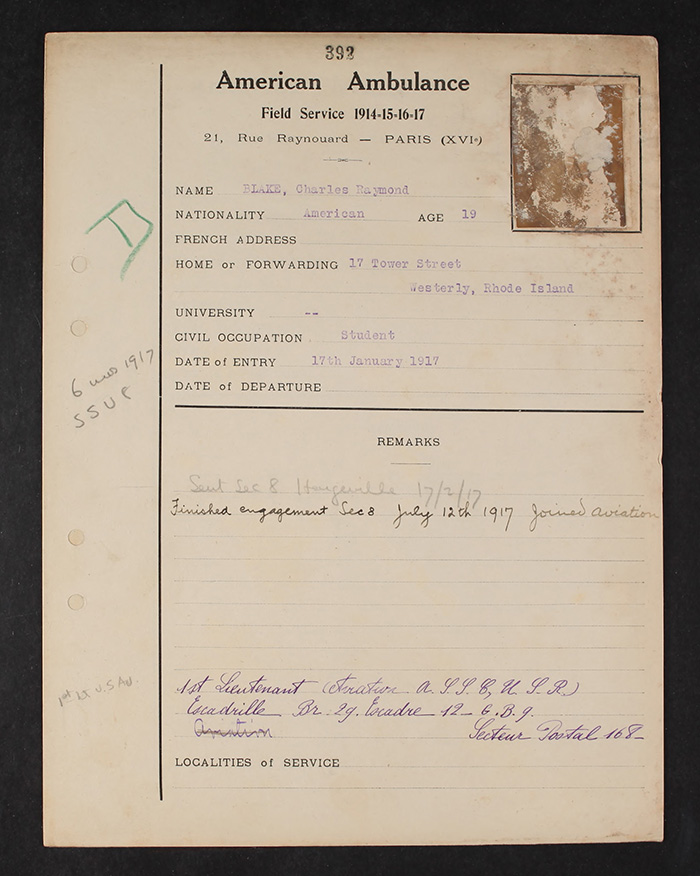 392
American Ambulance
Field Service 1914-15-16-17
21, Rue Raynouard — PARIS (XVIe)
NAME BLAKE, Charles Raymond
NATIONALITY American AGE 19
FRENCH ADDRESS
HOME or FORWARDING 17 Tower Street
Westerly, Rhode Island
UNIVERSITY --
CIVIL OCCUPATION Student
DATE of ENTRY 17th January 1917
DATE of DEPARTURE
6 mos 1917
SSU 8
REMARKS
Sent Sec 8 17/2/17
Finished engagement Sec 8 July 12th 1917 Joined aviation
1st Lt U.S.Av.
1st Lieutenant (Aviation A. S. S. C, U. S. R.)
Escadrille Br. 29. Escadre 12 G. B. 9.
Secteur Postal 168
LOCALITIES of SERVICE